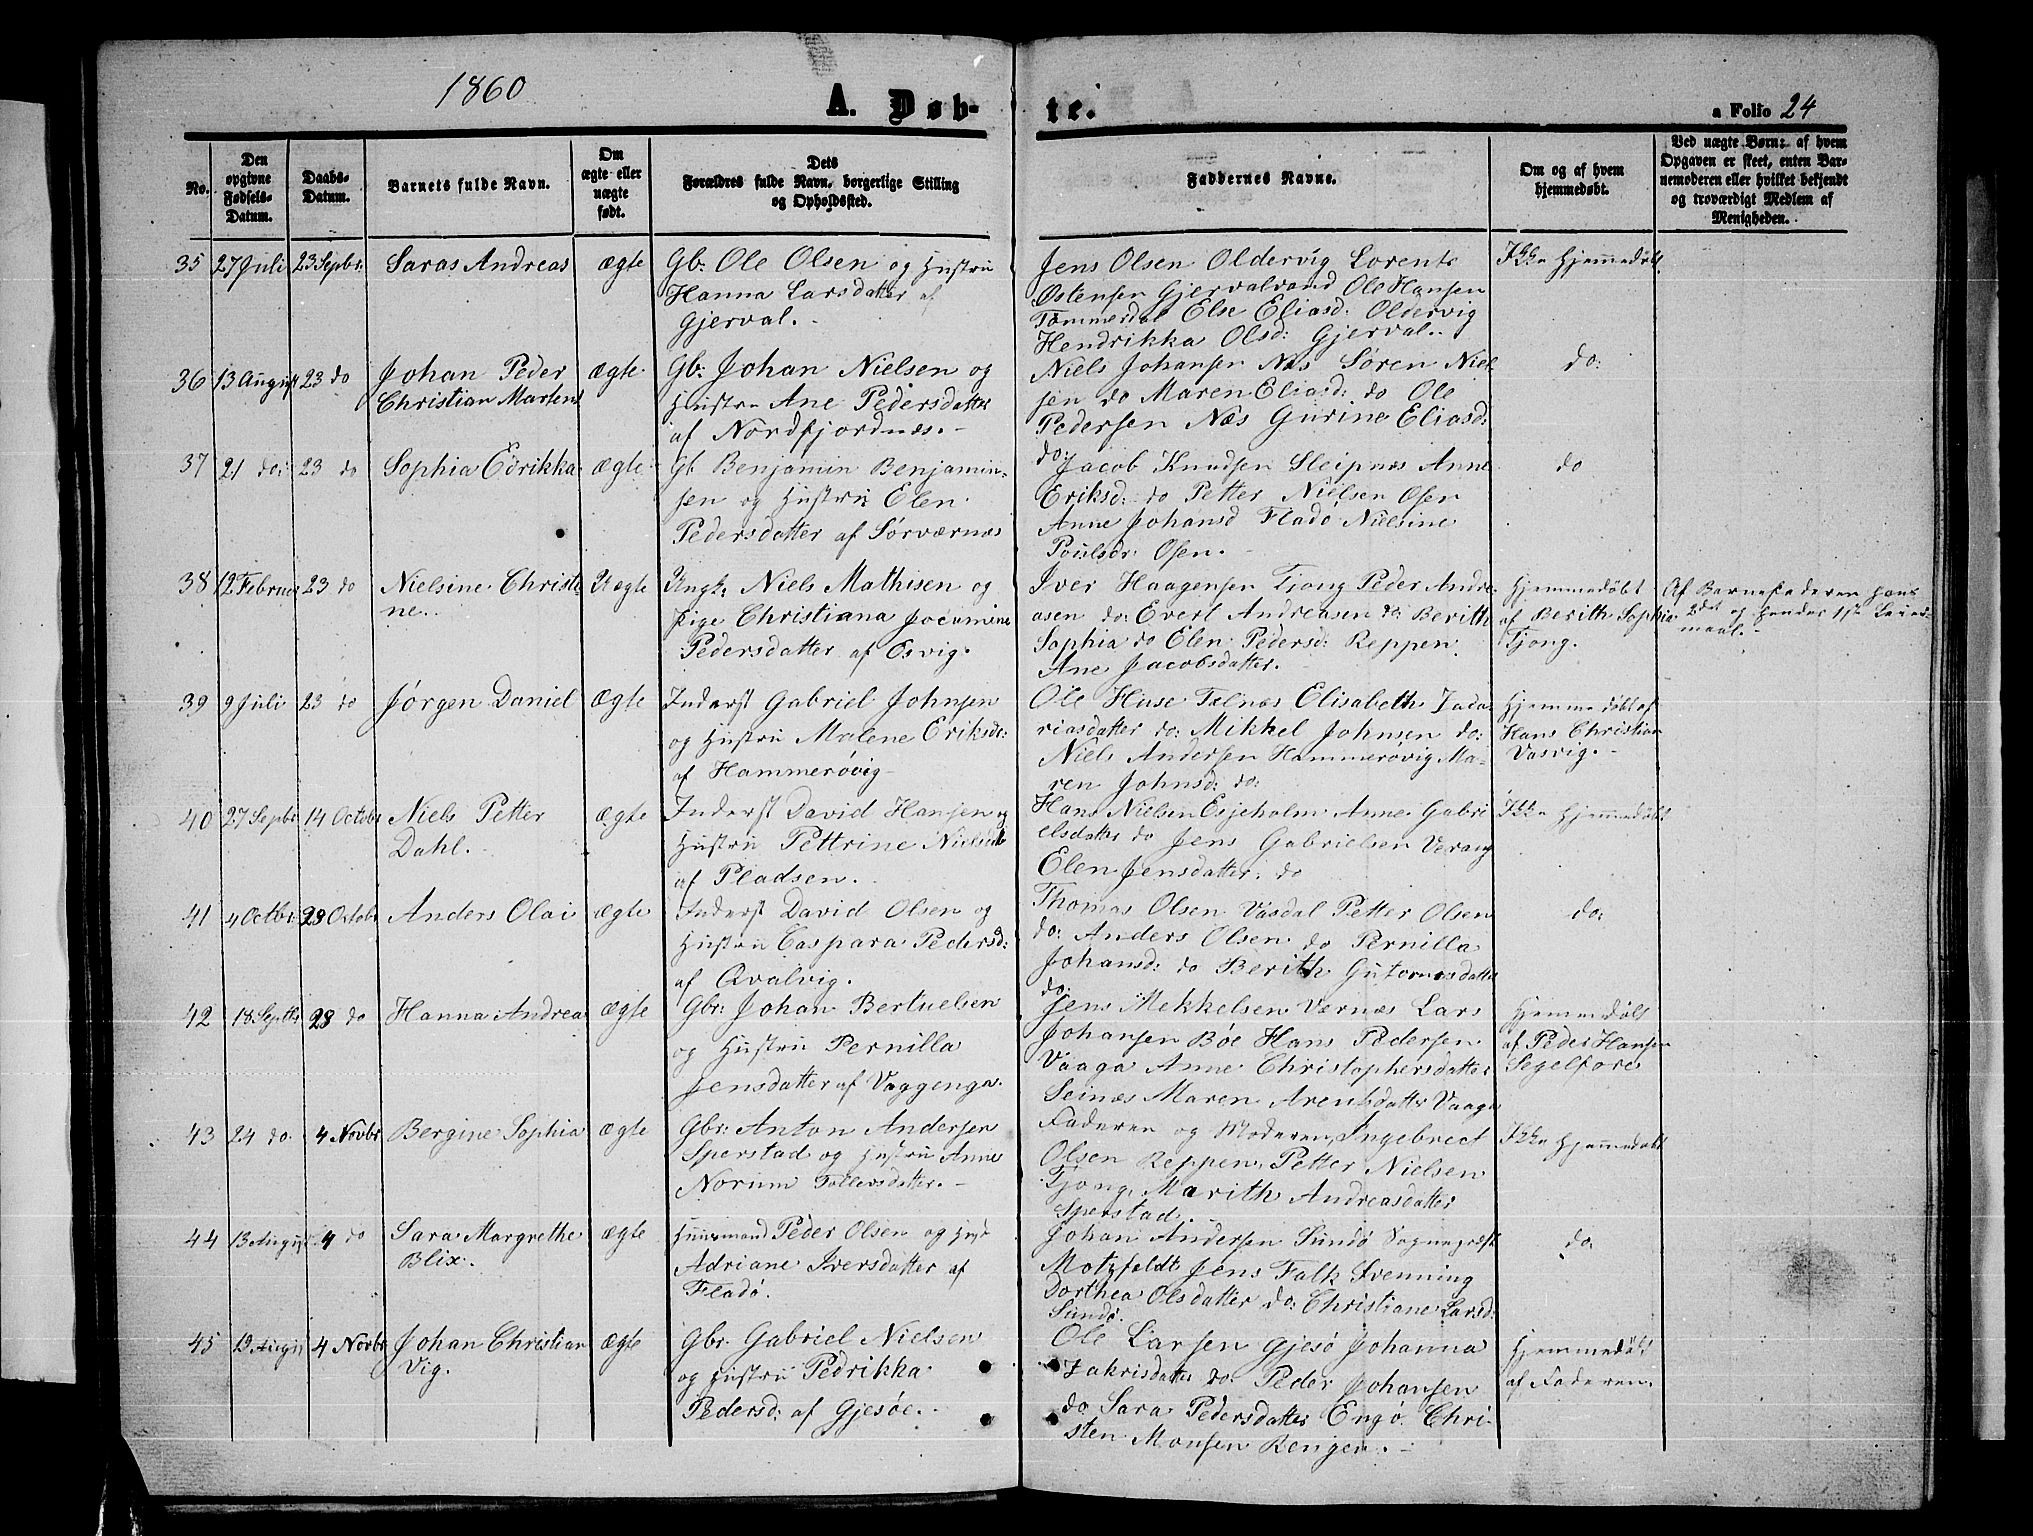 1860
A. Døb-
te.
a Folio 24
No.
Den
opgivne
Fødsels-
Datum.
Daabs-
Datum.
Barnets fulde Navn.
Om
ægte eller
uægte
født.
Dets
Forældres fulde Navn, borgerlige Stilling
og Opholdssted.
Faddernes Navne.
Om og af hvem
hjemmedøbt.
Ved uægte Børn: af hvem
Opgaven er skeet, enten Bar-
nemoderen eller hvilket bekjendt
og troværdigt Medlem af
Menigheden.
35 27 Juli 23 Septbr: Saras Andreas ægte
Gb: Ole Olsen og Hustru
Hanna Larsdatter af
Gjerval.
Jens Olsen Oldervig Lorents
Østensen Gjervalvand Ole Hansen
Tømmerdal Else Eliasd: Oldervig
Hendrikka Olsd: Gjerval.
Ikke Hjemmedøbt
36 13 August 23 do Johan Peder
Christian Martens
ægte
Gb: Johan Nielsen og
Hustru Ane Pedersdatter
af Nordfjordnæs.
Niels Johansen Næs Søren Niel-
sen do Maren Eliasd: do Ole
Pedersen Næs Gurine Eliasd:
do:
do:
37 21 do: 23 do Sophia Edrikka ægte
Gb Benjamin Benjamin-
sen og Hustru Elen
Pedersdatter af Sørværnæs
Jacob Knudsen Sleipnæs Anne
Eriksd: do Petter Nielsen Osen
Anne Johansd Fladø Nielsine
Poulsdr: Osen.
do
38 12 Februar 23 do Nielsine Christi-
ne.
Uægte
Ungk: Niels Mathisen og
Pige Christiana Jocumine
Pedersdatter af Osvig.
Iver Haagensen Tjong Peder Andre-
asen do: Evert Andreasen do: Berith
Sophia do Elen Pedersd: Reppen
Ane Jacobsdatter.
Hjemmedøbt
af Berith Sophia
Tjong.
Af Barnefaderen hans
2det og hendes 1ste Leier-
maal.
39 9 Juli 23 do Jørgen Daniel ægte
Inderst Gabriel Johnsen
og Hustru Malene Eriksdr:
af Hammerøvig
Ole Huse Telnæs Elisabeth Zaca-
riasdatter do: Mikkel Johnsen do:
Niels Andersen Hammerøvig Ma-
ren Johnsd: do:
Hjemmedøbt af
Hans Christian
Vasvig.
40 27 Septbr 14 Octobr Niels Petter
Dahl.
ægte
Inderst David Hansen og
Hustru Pettrine Nielsdtr
af Pladsen.
Hans Nielsen Esjeholm Anne Gabri-
elsdatter do Jens Gabrielsen Verang
Elen Jensdatter. do
Ikke Hjemmedøbt
41 4 Octbr 28 Octobr Anders Olai ægte
Inderst David Olsen og
Hustru Caspara Pedersd:
af Qvalvig.
Thomas Olsen Vasdal Petter Olsen
do: Anders Olsen do Pernilla
Johansd: do Berith Gutormsdatter
do:
do:
42 18 Septbr 28 do Hanna Andrea ægte
Gbr: Johan Bertuelsen
og Hustru Pernilla
Jensdatter af Vaggenga.
Jens Mekkelsen Værnæs Lars
Johansen Bøe Hans Pedersen
Vaaga Anne Christophersdatter
Seinæs Maren Arentsdatter Vaaga
Hjemmedøbt
af Peder Hansen
Segelfore
43 24 do. 4 Novbr Bergine Sophia ægte
Gbr: Anton Andersen
Sperstad og Hustru Anne
Norum Tollersdatter.
Faderen og Moderen, Ingebrect
Olsen Reppen, Petter Nielsen
Tjong, Marith Andreasdatter
Sperstad.
Ikke Hjemmedøbt
44 13 August 4 do Sara Margrethe
Blix.
ægte
Huusmand Peder Olsen og Hust
Adriane Iversdatter af
Fladø.
Johan Andersen Sundø Sognepræst
Motzfeldt Jens Falk Svenning
Dorthea Olsdatter do: Christiane Larsd:
Sundø.
do:
45 19 August 4 Novbr Johan Christian
Vig.
ægte
Gbr. Gabriel Nielsen
og Hustru Pedrikka
Pedersd: af Gjesøe.
Ole Larsen Gjesø Johanna
Zakrisdatter do: Peder Johansen
do Sara Pedersdatter Engø Chri-
sten Monsen Rengen.
Hjemmedøbt
af Faderen.